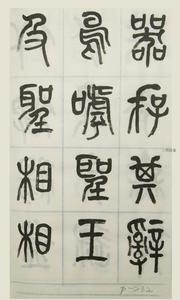 器存其辭
烏嘑聖王
及聖相相